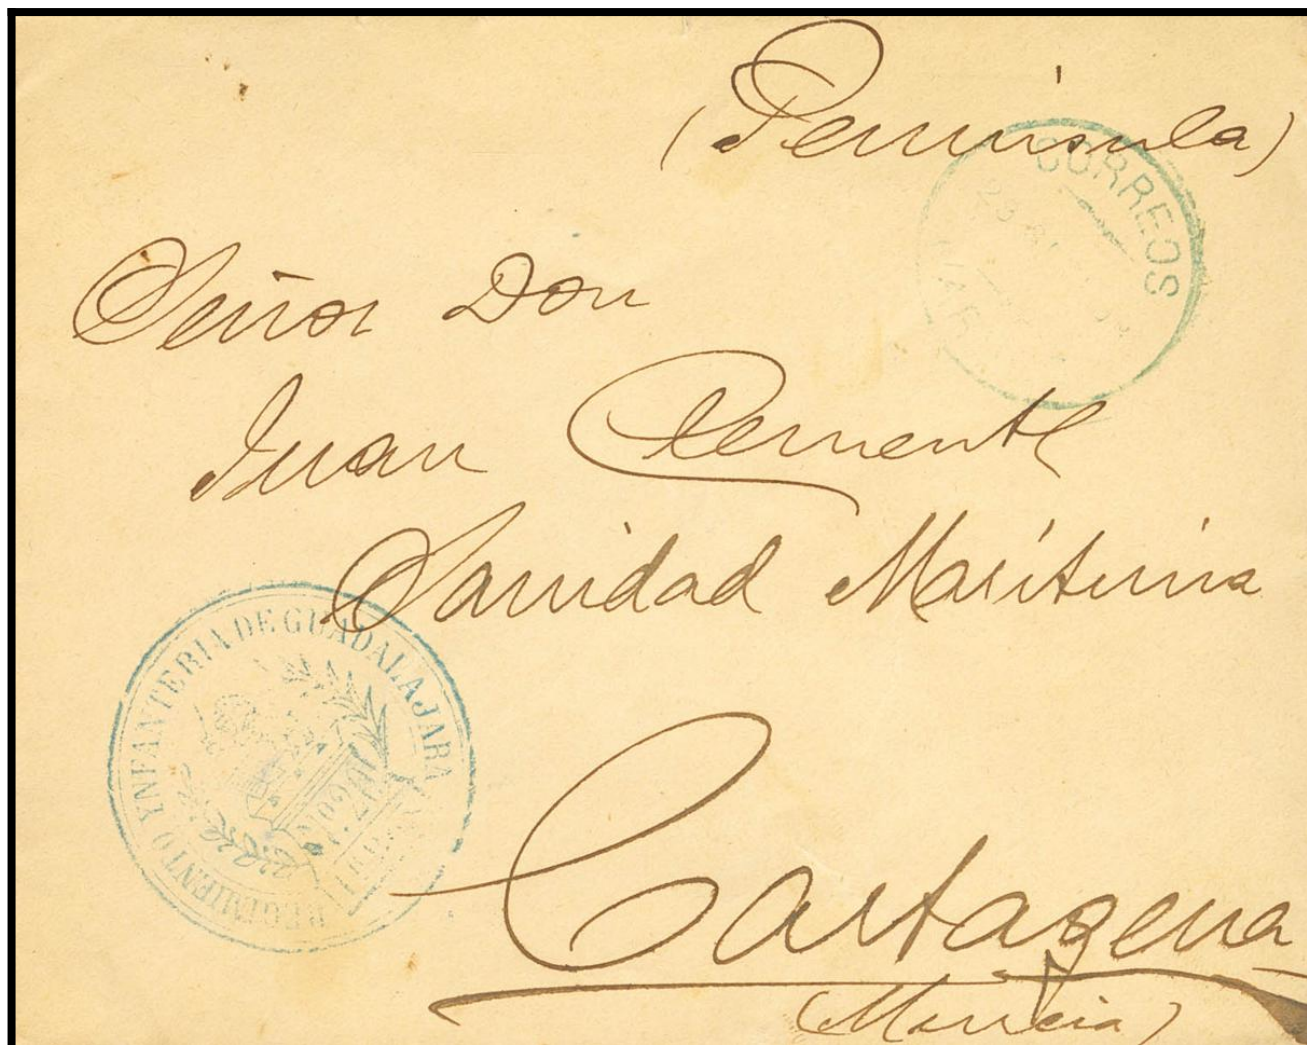 (Península)
CORREOS
Señor Don
Juan Clemente
Sanidad Marítima
REGIMIENTO YNFANTERIA DE GUADALAJARA
Cartagena
(Murcia)